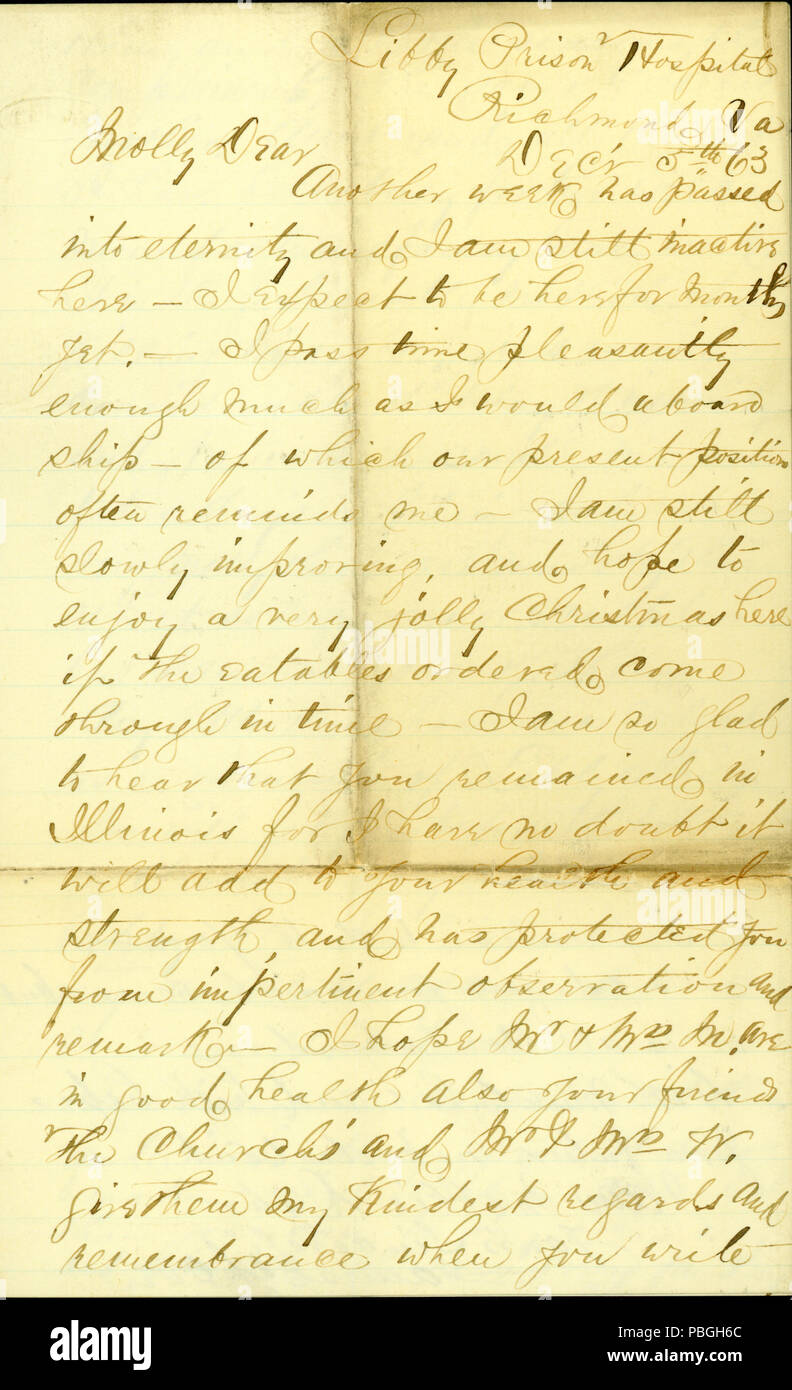 Libby Prison Hospital
Richmond, Va
Dec'r 5th 63
Molly Dear
Another week has passed
into eternity and I am still inactive
here — I expect to be here for months
yet. — I pass time pleasantly
enough much as I would aboard
ship — of which our present position
often reminds me — I am still
slowly improving, and hope to
enjoy a very jolly Christmas here
if the eatables ordered come
through in time — I am so glad
to hear that you remained in
Illinois for I have no doubt it
will add to your health and
strength, and has protected you
from impertinent observation and
remark — I hope Mr & Mrs M. are
in good health also your friends
the Church's and Mr & Mrs W.
give them my kindest regards and
remembrance when you write
alamy
a
alamy stock photo
PBGH6C
www.alamy.com